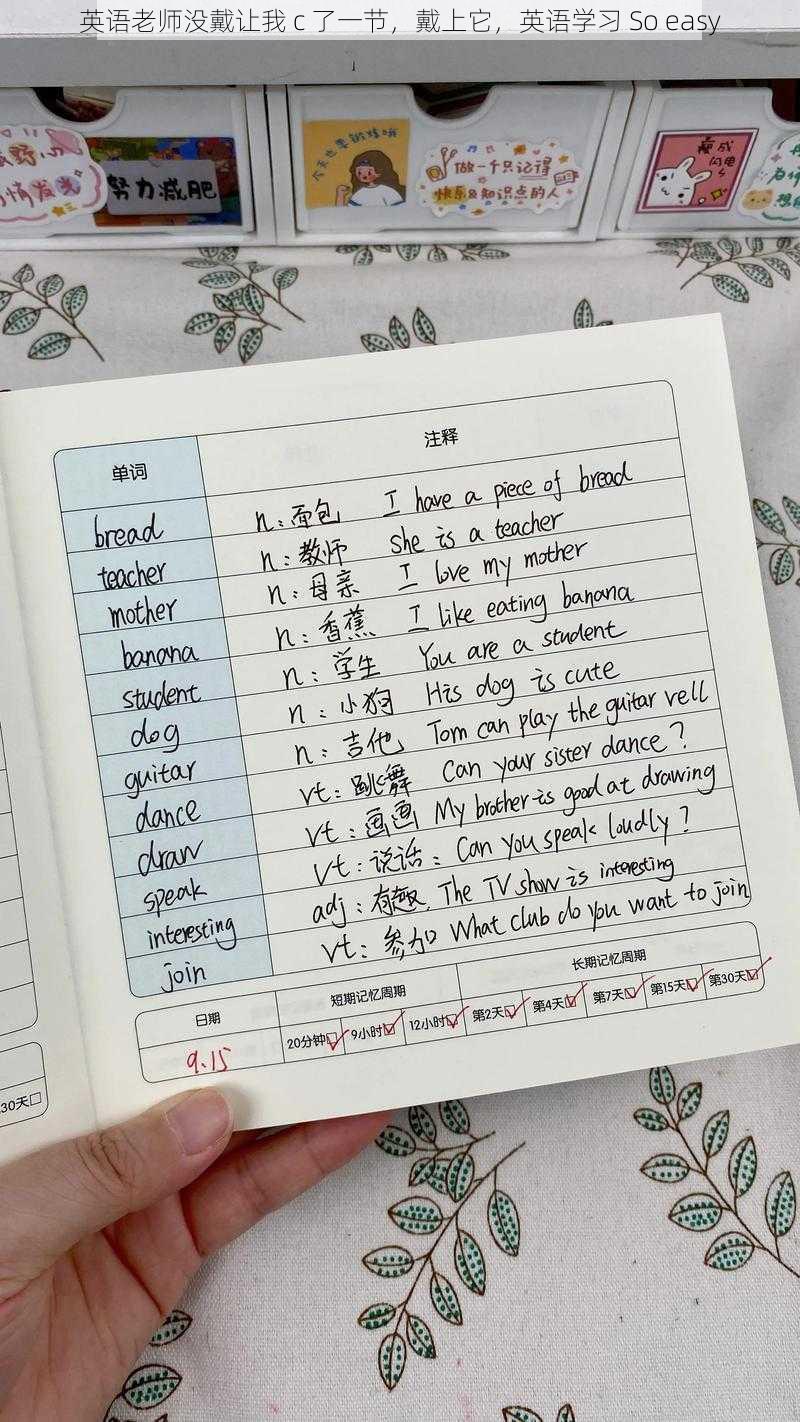 英语老师没戴让我 c 了一节，戴上它，英语学习 So easy
努力减肥
今天也要锻炼哦
做一个只记得
快乐&知识点的人
瘦成
闪电
单词 注释
bread n：面包 I have a piece of bread
teacher n：教师 She is a teacher
mother n：母亲 I love my mother
banana n：香蕉 I like eating banana
student n：学生 You are a student
dog n：小狗 His dog is cute
guitar n：吉他 Tom can play the guitar vell
dance vt：跳舞 Can your sister dance？
draw vt：画画 My brother is good at drawing
speak vt：说话：Can you speak loudly？
interesting adj：有趣. The TV show is interesting
join vt：参加 What club do you want to join
日期 短期记忆周期 长期记忆周期
9.15 20分钟 9小时 12小时 第2天 第4天 第7天 第15天 第30天
30天